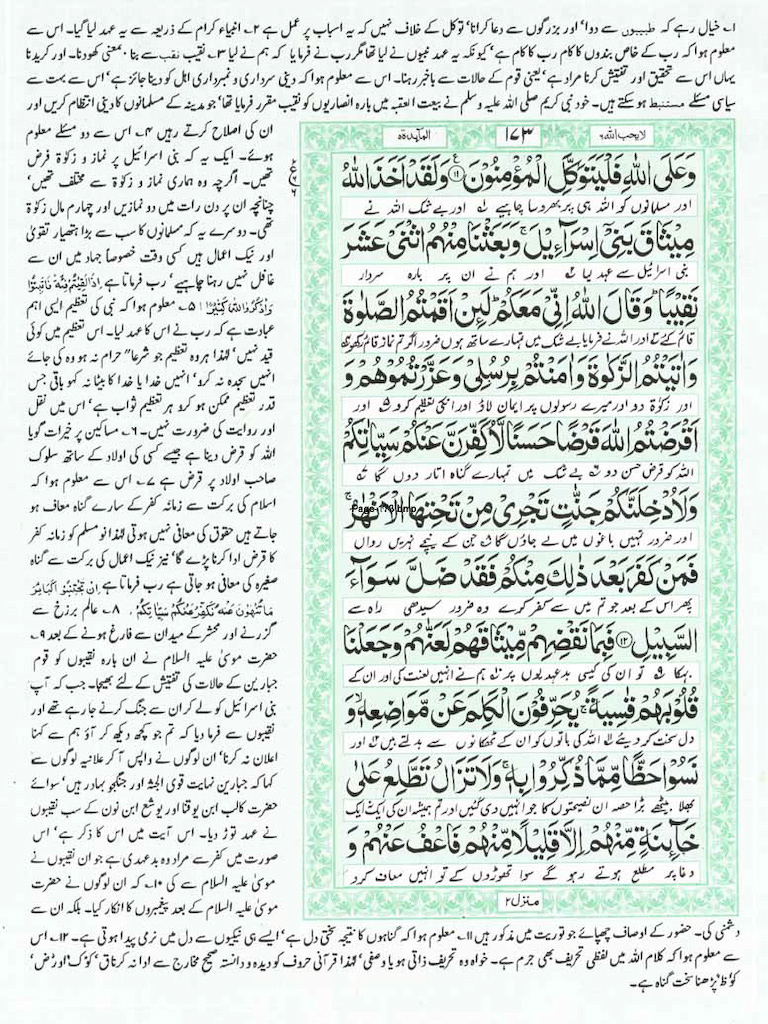 ۱۔ خیال رہے کہ طبیبوں سے دوا' اور بزرگوں سے دعا کرانا' توکل کے خلاف نہیں کہ یہ اسباب پر عمل ہے ۲۔ انبیاء کرام کے ذریعہ سے یہ عہد لیا گیا۔ اس سے
معلوم ہوا کہ رب کے خاص بندوں کا کام رب کا کام ہے' کیونکہ یہ عہد نبیوں نے لیا تھا مگر رب نے فرمایا کہ ہم نے لیا ۳۔ نقیب نقب سے بنا۔ بمعنی کھودنا۔ اور کریدنا
یہاں اس سے تحقیق اور تفتیش کرنا مراد ہے' یعنی قوم کے حالات سے باخبر رہنا۔ اس سے معلوم ہوا کہ دینی سرداری و نمبرداری اہل کو دینا جائز ہے' اس سے بہت سے
سیاسی مسئلے مستنبط ہو سکتے ہیں۔ خود نبی کریم صلی اللہ علیہ وسلم نے بیعت العقبہ میں بارہ انصاریوں کو نقیب مقرر فرمایا تھا' جو مدینہ کے مسلمانوں کا دینی انتظام کریں اور
ان کی اصلاح کرتے رہیں ۴۔ اس سے دو مسئلے معلوم
ہوئے۔ ایک یہ کہ بنی اسرائیل پر نماز و زکوٰۃ فرض
تھیں۔ اگرچہ وہ ہماری نماز و زکوٰۃ سے مختلف تھیں'
چنانچہ ان پر دن رات میں دو نمازیں اور چہارم مال زکوٰۃ
تھی۔ دوسرے یہ کہ مسلمانوں کا سب سے بڑا ہتھیار تقویٰ
اور نیک اعمال ہیں کسی وقت خصوصاً جہاد میں ان سے
غافل نہیں رہنا چاہیے' رب فرماتا ہے اِذَا لَقِيْتُمْ فِئَةً فَاثْبُتُوْا
وَاذْكُرُوا اللهَ كَثِيْرًا ۵۔ معلوم ہوا کہ نبی کی تعظیم ایسی اہم
عبادت ہے کہ رب نے اس کا عہد لیا۔ اس تعظیم میں کوئی
قید نہیں' لہٰذا ہر وہ تعظیم جو شرعا" حرام نہ ہو وہ کی جائے
انہیں سجدہ نہ کرو' انہیں خدا یا خدا کا بیٹا نہ کہو باقی جس
قدر تعظیم ممکن ہو کرو ہر تعظیم ثواب ہے' اس میں نقل
اور روایت کی ضرورت نہیں۔ ۶۔ مساکین پر خیرات گویا
اللہ کو قرض دینا ہے جیسے کسی کی اولاد کے ساتھ سلوک
صاحب اولاد پر قرض ہے ۷۔ اس سے معلوم ہوا کہ
اسلام کی برکت سے زمانہ کفر کے سارے گناہ معاف ہو
جاتے ہیں حقوق کی معافی نہیں ہوتی لہٰذا نو مسلم کو زمانہ کفر
کا قرض ادا کرنا پڑے گا' نیز نیک اعمال کی برکت سے گناہ
صغیرہ کی معافی ہو جاتی ہے رب فرماتا ہے اِنْ تَجْتَنِبُوْا كَبَائِرَ
مَا تُنْهَوْنَ عَنْهُ نُكَفِّرْ عَنْكُمْ سَيِّاٰتِكُمْ ۸۔ عالم برزخ سے
گزرنے اور محشر کے میدان سے فارغ ہونے کے بعد ۹۔
حضرت موسیٰ علیہ السلام نے ان بارہ نقیبوں کو قوم
جبارین کے حالات کی تفتیش کے لئے بھیجا۔ جب کہ آپ
بنی اسرائیل کو لے کر ان سے جنگ کرنے جا رہے تھے اور
نقیبوں سے فرما دیا کہ تم جو کچھ دیکھ کر آؤ ہم سے کہنا
اعلان نہ کرنا' ان لوگوں نے واپس آ کر علانیہ لوگوں سے
کہا کہ جبارین نہایت قوی الجثہ اور جنگجو بہادر ہیں' سوائے
حضرت کالب ابن یوقنا اور یوشع ابن نون کے سب نقیبوں
نے عہد توڑ دیا۔ اس آیت میں اس کا ذکر ہے' اس
صورت میں کفر سے مراد وہ بدعہدی ہے جو ان نقیبوں نے
موسیٰ علیہ السلام سے کی ۱۰۔ کہ ان لوگوں نے حضرت
موسیٰ علیہ السلام کے بعد پیغمبروں کا انکار کیا۔ بلکہ ان سے
لا يحب الله ٦ ۱۷۳ المآئدة ٥
وَعَلَى اللّٰهِ فَلْيَتَوَكَّلِ الْمُؤْمِنُوْنَ ۝۱۱ وَلَقَدْ اَخَذَ اللّٰهُ
اور مسلمانوں کو اللہ ہی پر بھروسا چاہیے ۱ اور بے شک اللہ نے
مِيْثَاقَ بَنِيْٓ اِسْرَآءِيْلَ ۚ وَبَعَثْنَا مِنْهُمُ اثْنَيْ عَشَرَ
بنی اسرائیل سے عہد لیا ۲ اور ہم نے ان پر بارہ سردار
نَقِيْبًا ؕ وَقَالَ اللّٰهُ اِنِّيْ مَعَكُمْ ؕ لَىِٕنْ اَقَمْتُمُ الصَّلٰوةَ
قائم کئے ۳ اور اللہ نے فرمایا بے شک میں تمہارے ساتھ ہوں ضرور اگر تم نماز قائم رکھو
وَاٰتَيْتُمُ الزَّكٰوةَ وَاٰمَنْتُمْ بِرُسُلِيْ وَعَزَّرْتُمُوْهُمْ وَ
اور زکوٰۃ دو اور میرے رسولوں پر ایمان لاؤ اور انکی تعظیم کرو ۵ اور
اَقْرَضْتُمُ اللّٰهَ قَرْضًا حَسَنًا لَّاُكَفِّرَنَّ عَنْكُمْ سَيِّاٰتِكُمْ
اللہ کو قرض حسن دو ۶ بے شک میں تمہارے گناہ اتار دوں گا ۷
وَلَاُدْخِلَنَّكُمْ جَنّٰتٍ تَجْرِيْ مِنْ تَحْتِهَا الْاَنْهٰرُ ۚ
Page-173.bmp
اور ضرور تمہیں باغوں میں لے جاؤں گا ۸ جن کے نیچے نہریں رواں
فَمَنْ كَفَرَ بَعْدَ ذٰلِكَ مِنْكُمْ فَقَدْ ضَلَّ سَوَآءَ
پھر اس کے بعد جو تم میں سے کفر کرے وہ ضرور سیدھی راہ سے
السَّبِيْلِ ۝۱۲ فَبِمَا نَقْضِهِمْ مِّيْثَاقَهُمْ لَعَنّٰهُمْ وَجَعَلْنَا
بہکا ۹ تو ان کی کیسی بدعہدیوں پر ۱۰ ہم نے انہیں لعنت کی اور ان کے
قُلُوْبَهُمْ قٰسِيَةً ۚ يُحَرِّفُوْنَ الْكَلِمَ عَنْ مَّوَاضِعِهٖ ۙ وَ
دل سخت کر دیئے ۱۱ اللہ کی باتوں کو ان کے ٹھکانوں سے بدلتے ہیں ۱۲ اور
نَسُوْا حَظًّا مِّمَّا ذُكِّرُوْا بِهٖ ۚ وَلَا تَزَالُ تَطَّلِعُ عَلٰى
بھلا بیٹھے بڑا حصہ ان نصیحتوں کا جو انہیں دی گئیں اور تم ہمیشہ ان کی ایک نہ ایک
خَآىِٕنَةٍ مِّنْهُمْ اِلَّا قَلِيْلًا مِّنْهُمْ فَاعْفُ عَنْهُمْ وَ
دغا پر مطلع ہوتے رہو گے سوا تھوڑوں کے تو انہیں معاف کرو
منزل ٢
دشمنی کی۔ حضور کے اوصاف چھپائے جو توریت میں مذکور ہیں ۱۱۔ معلوم ہوا کہ گناہوں کا نتیجہ سختی دل ہے' ایسے ہی نیکیوں سے دل میں نرمی پیدا ہوتی ہے۔ ۱۲۔ اس
سے معلوم ہوا کہ کلام اللہ میں لفظی تحریف بھی جرم ہے۔ خواہ وہ تحریف ذاتی ہو یا وصفی' لہٰذا قرآنی حروف کو دیدہ و دانستہ صحیح مخارج سے ادا نہ کرنا ق' کو ک' اور ض'
کو ظ' پڑھنا سخت گناہ ہے۔